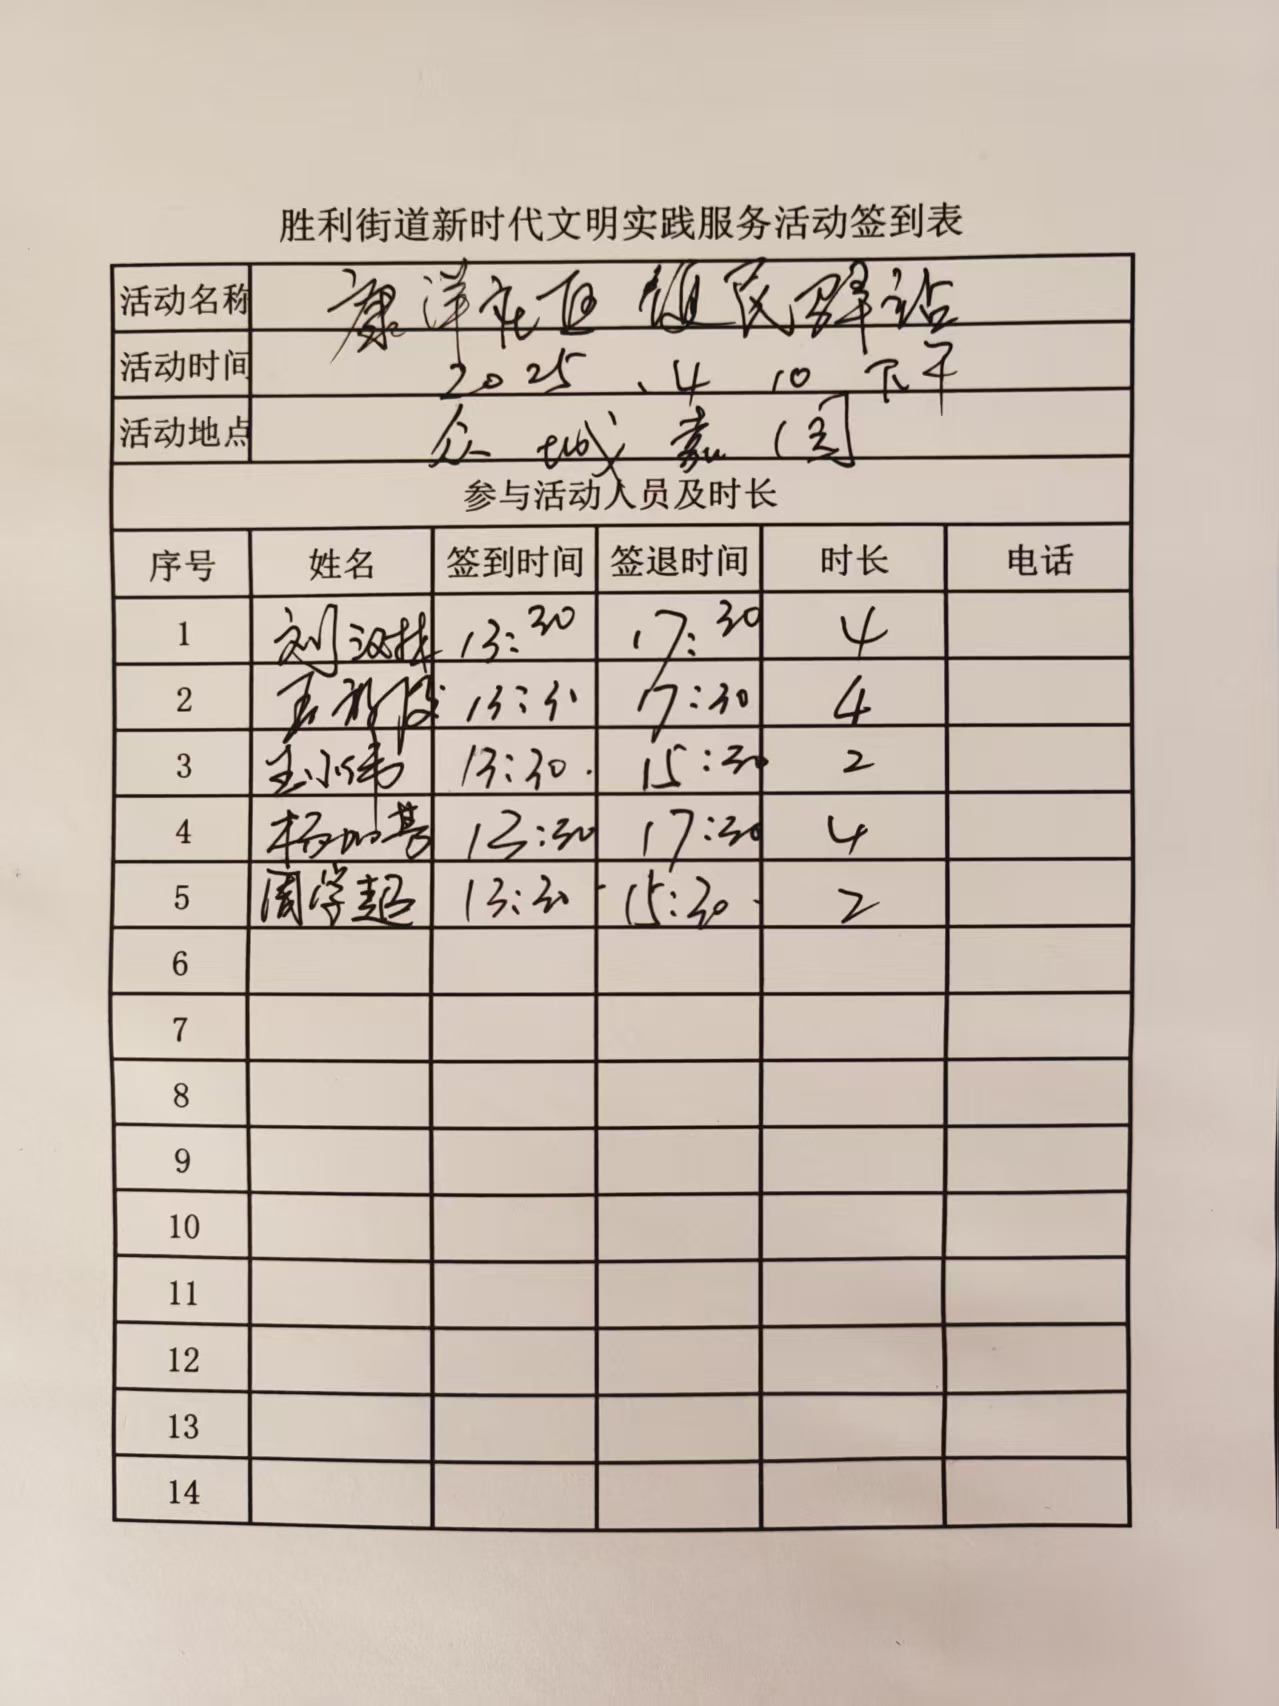 胜利街道新时代文明实践服务活动签到表
活动名称 康洋社区 便民驿站
活动时间 2025.4.10 下午
活动地点 众城嘉园
参与活动人员及时长
序号 姓名 签到时间 签退时间 时长 电话
1 刘汉林 13:30 17:30 4
2 王 13:30 17:30 4
3 王小伟 13:30. 15:30 2
4 杨 13:30 17:30 4
5 周学超 13:30 15:30. 2
6
7
8
9
10
11
12
13
14